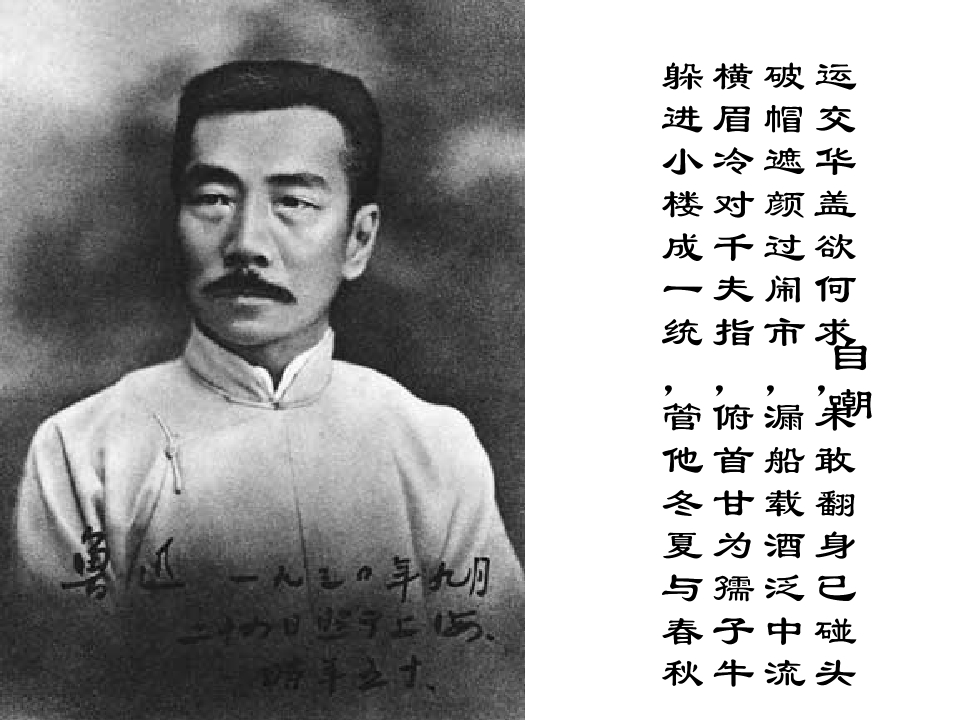 自嘲
运交华盖欲何求，未敢翻身已碰头
破帽遮颜过闹市，漏船载酒泛中流
横眉冷对千夫指，俯首甘为孺子牛
躲进小楼成一统，管他冬夏与春秋
魯迅 一九三〇年九月
二十四日照于上海、
时年五十.